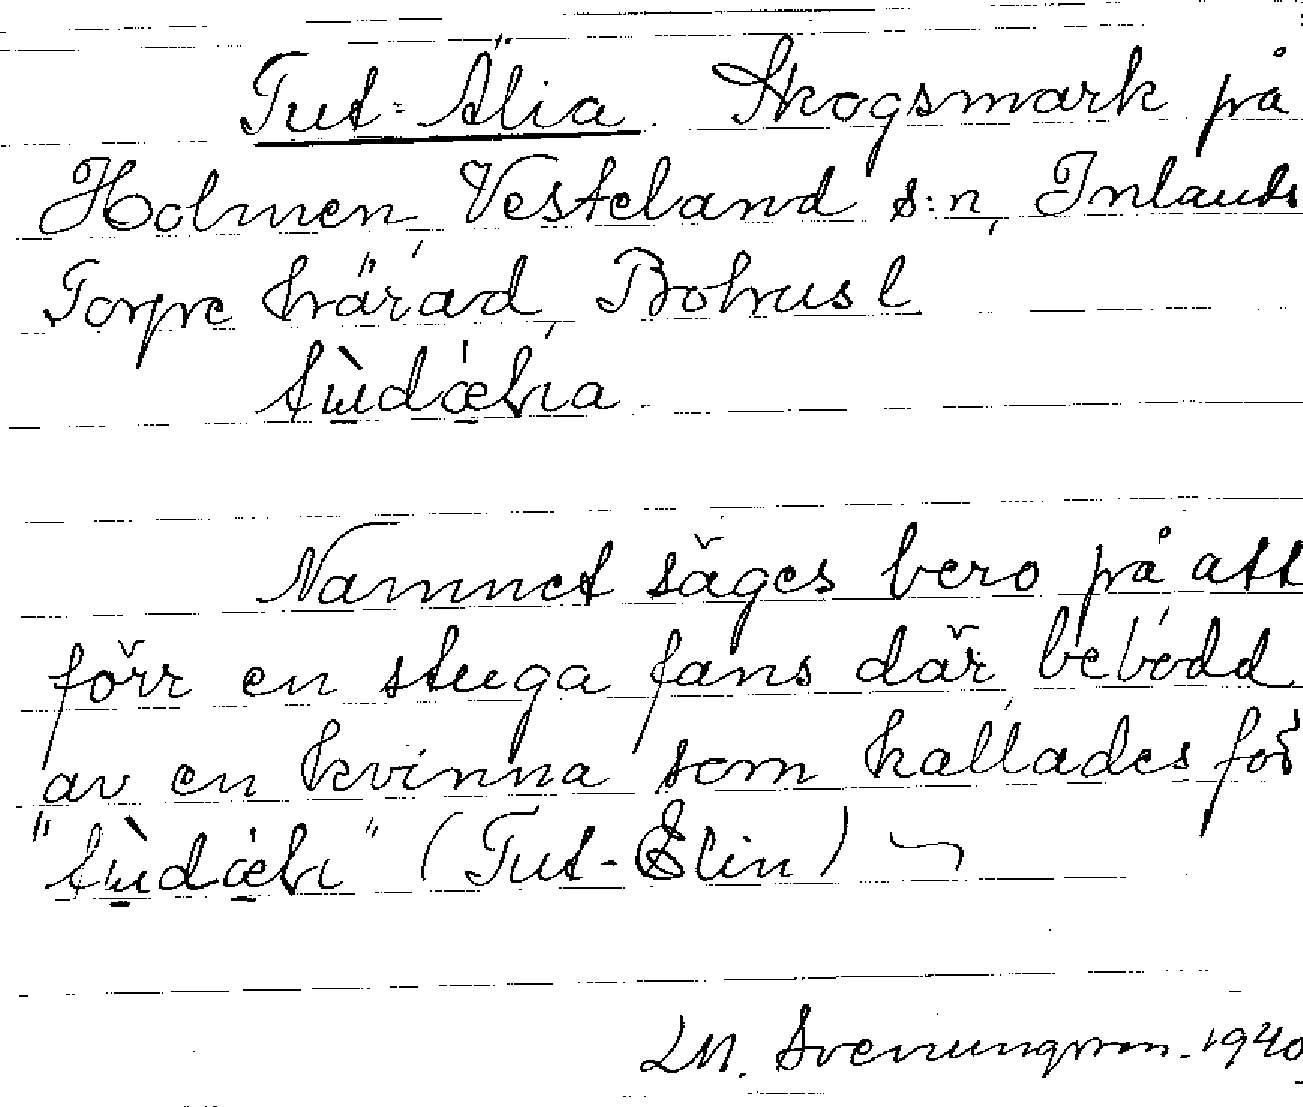 Tut-Älia. Skogsmark på
Holmen, Vesteland s:n, Inlands
Torpe härad, Bohusl
Namnet säges bero på att
förr en stuga fans där bebodd
av en kvinna som kallades för
(Tut-Elin)
LM. Svenungsson. 1940